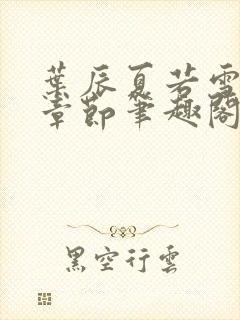 葉辰夏若雪
章節筆趣閣
黑空行雲